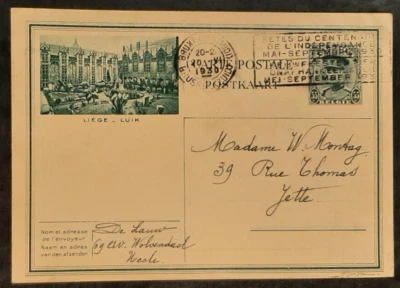 BRUX
20-2
1930
FETES DU CENTENAIRE
DE L'INDEPENDANCE
MAI-SEPTEMBRE 1930
MEI-SEPTEMBER
CARTE POSTALE
POSTKAART
35
BELGIE
35
LIEGE _ LUIK
Madame W. Montag
39 Rue Thomas
Jette
Nom et adresse
de l'envoyeur
Naam en adres
van den afzender
De Lauw
69 av. Wolvendael
Uccle